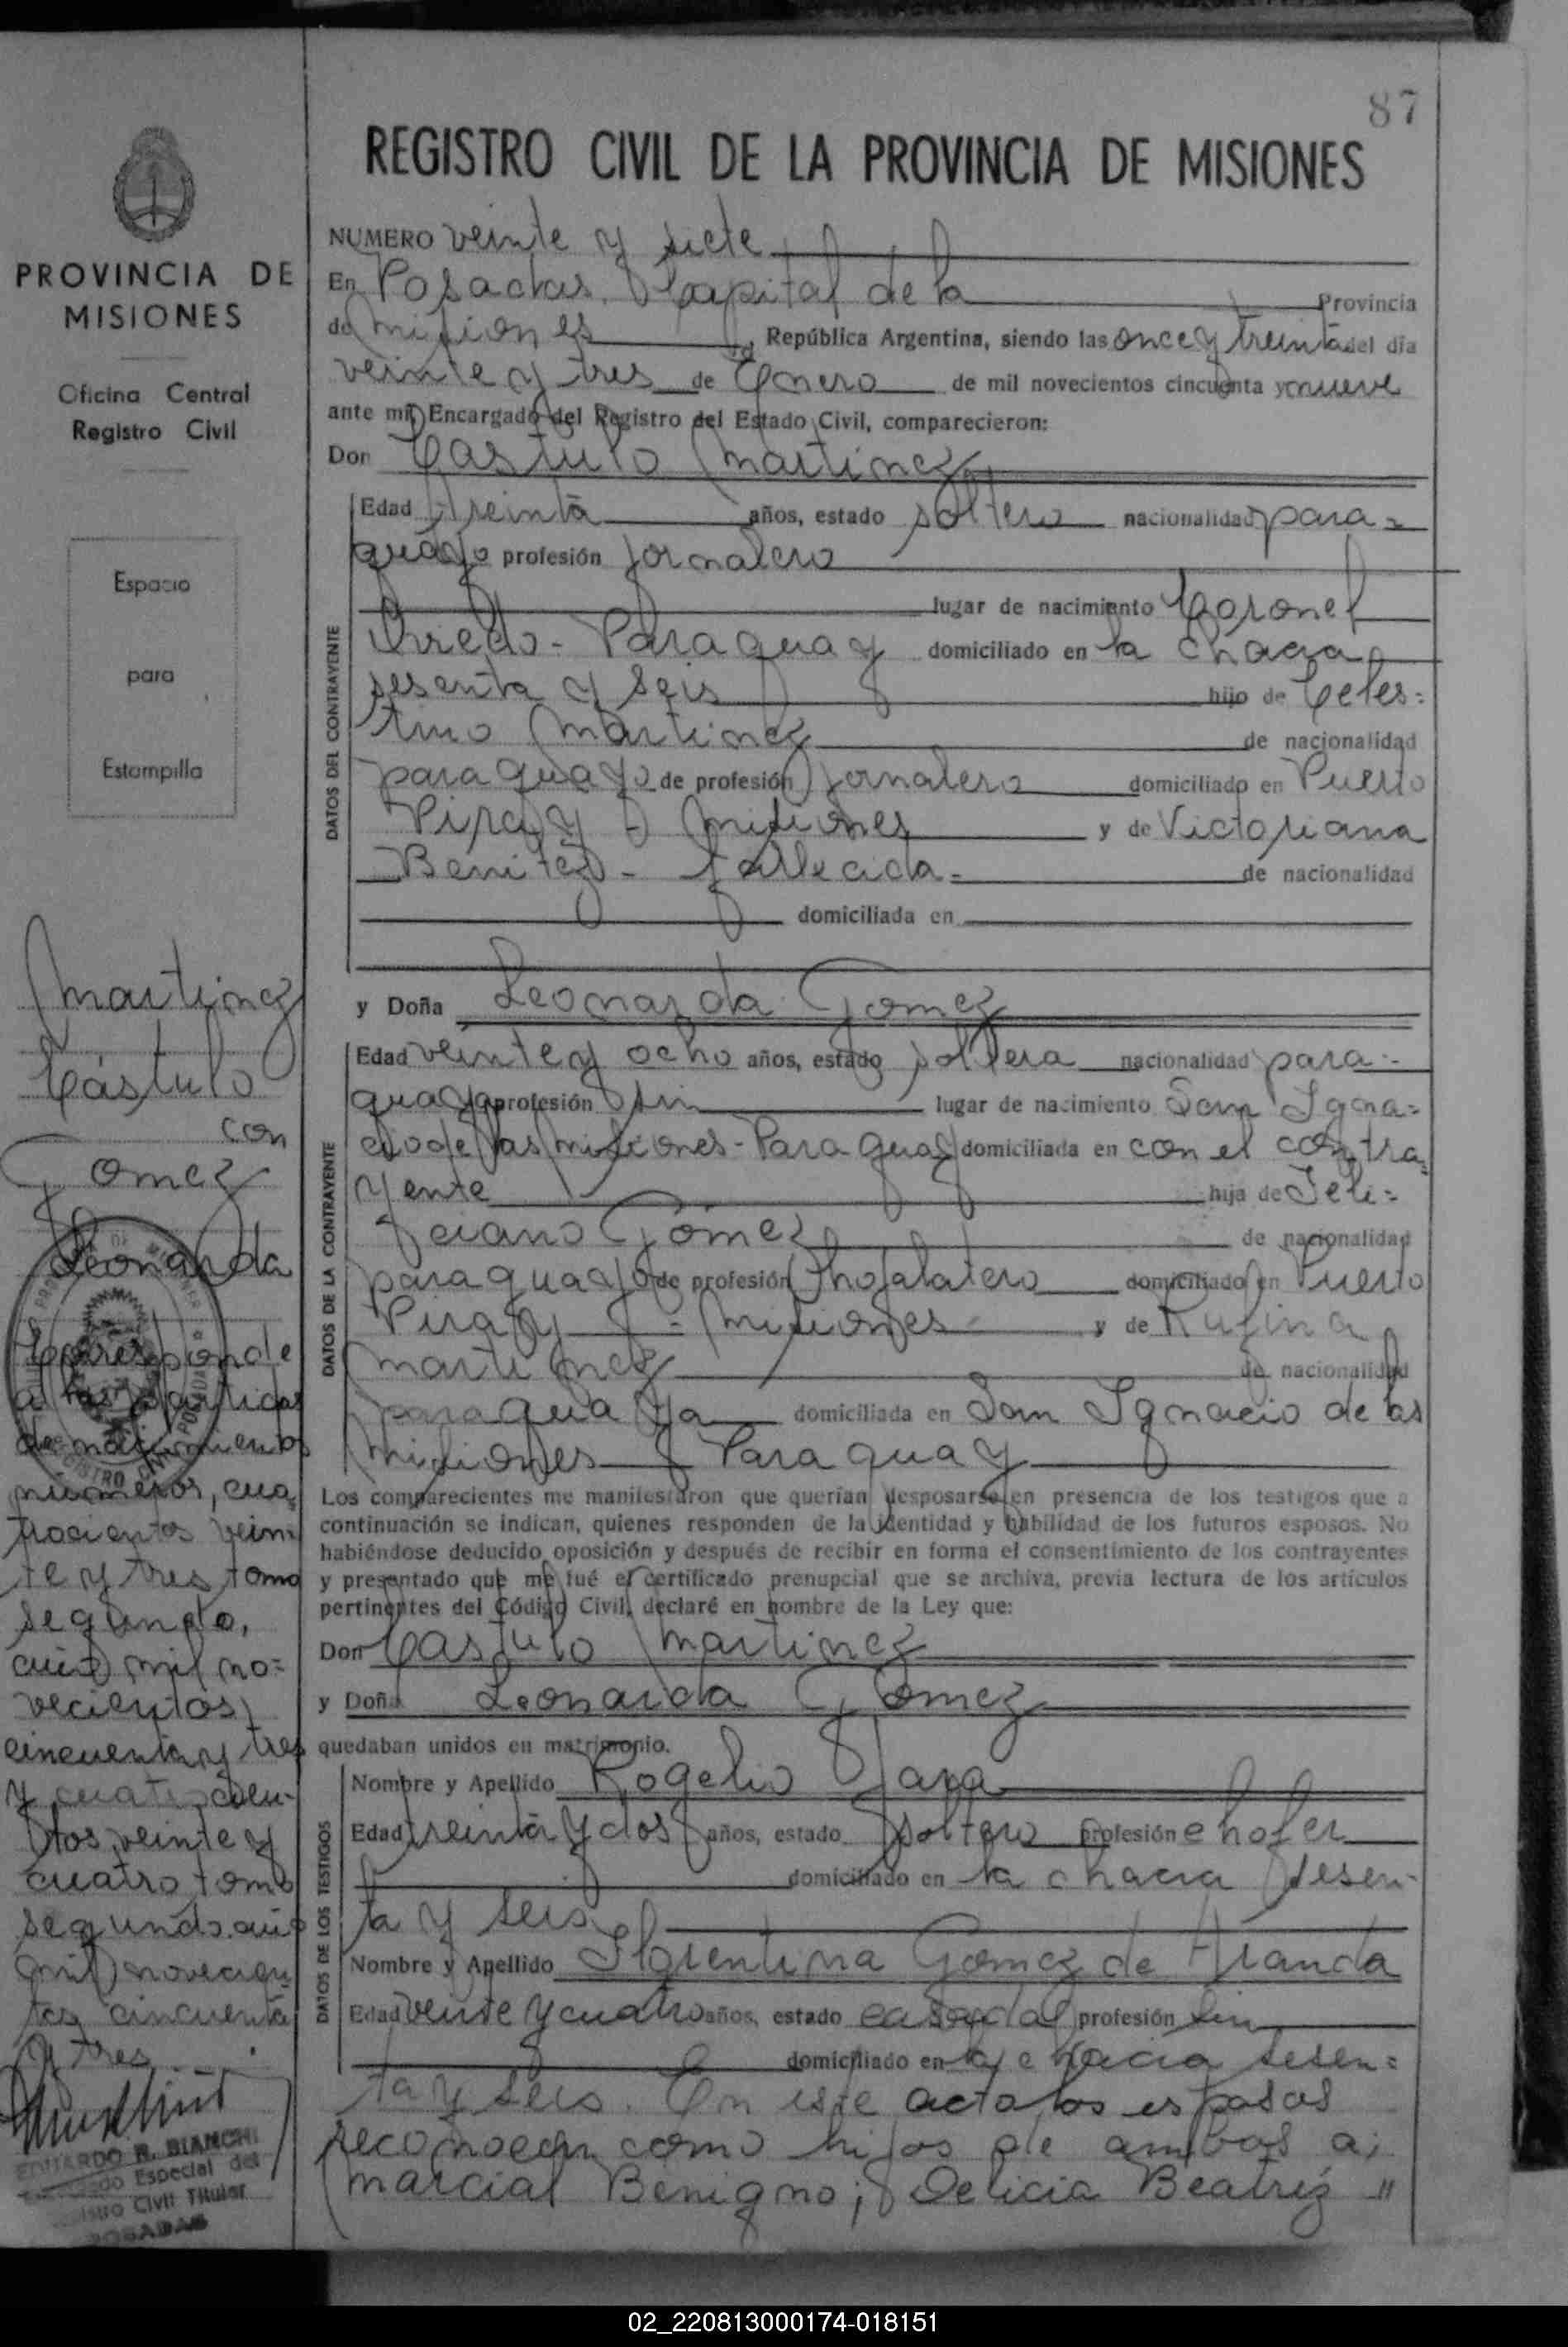 87
REGISTRO CIVIL DE LA PROVINCIA DE MISIONES
PROVINCIA DE
MISIONES
Oficina Central
Registro Civil
Espacio
para
Estampilla
Martinez
Cástulo
con
Gomez
Leonarda
Corresponde
a las partidas
de nacimientos
numeros, cua-
trocientos vein-
te y tres tomo
segundo,
año mil no=
vecientos
cincuenta y tres
y cuatrocien-
tos veinte y
cuatro tomo
segundo año
mil novecien-
tos cincuenta
y tres
EDUARDO R. BIANCHI
Especial del
Registro Civil Titular
POSADAS
NUMERO veinte y siete
En Posadas, Capital de la Provincia
de Misiones, República Argentina, siendo las once y treinta del día
veinte y tres de Enero de mil novecientos cincuenta y nueve
ante mí, Encargado del Registro del Estado Civil, comparecieron:
Don Castulo Martinez
DATOS DEL CONTRAYENTE
Edad treinta años, estado soltero nacionalidad para=
guayo profesión jornalero
lugar de nacimiento Coronel
Oviedo - Paraguay domiciliado en la chacra
sesenta y seis hijo de Celes=
tino Martinez de nacionalidad
paraguayo de profesión jornalero domiciliado en Puerto
Piray - Misiones y de Victoriana
Benitez - fallecida - de nacionalidad
domiciliada en
y Doña Leonarda Gomez
DATOS DE LA CONTRAYENTE
Edad veinte y ocho años, estado soltera nacionalidad para-
guaya profesión sin lugar de nacimiento San Igna=
cio de las Misiones - Paraguay domiciliada en con el contra=
yente hija de Feli=
ciano Gomez de nacionalidad
paraguayo de profesión hojalatero domiciliado en Puerto
Piray - Misiones y de Rufina
Martinez de nacionalidad
paraguaya domiciliada en San Ignacio de las
Misiones Paraguay
Los comparecientes me manifestaron que querían desposarse en presencia de los testigos que a
continuación se indican, quienes responden de la identidad y habilidad de los futuros esposos. No
habiéndose deducido oposición y después de recibir en forma el consentimiento de los contrayentes
y presentado que me fué el certificado prenupcial que se archiva, previa lectura de los artículos
pertinentes del Código Civil, declaré en nombre de la Ley que:
Don Castulo Martinez
y Doña Leonarda Gomez
quedaban unidos en matrimonio.
DATOS DE LOS TESTIGOS
Nombre y Apellido Rogelio Jara
Edad treinta y dos años, estado soltero profesión chofer
domiciliado en la chacra sesen-
ta y seis
Nombre y Apellido Florentina Gomez de Aranda
Edad veinte y cuatro años, estado casada profesión sin
domiciliado en la chacra sesen=
ta y seis. En este acto los esposos
reconocen como hijos de ambos a;
Marcial Benigno; Delicia Beatriz "
02_220813000174-018151